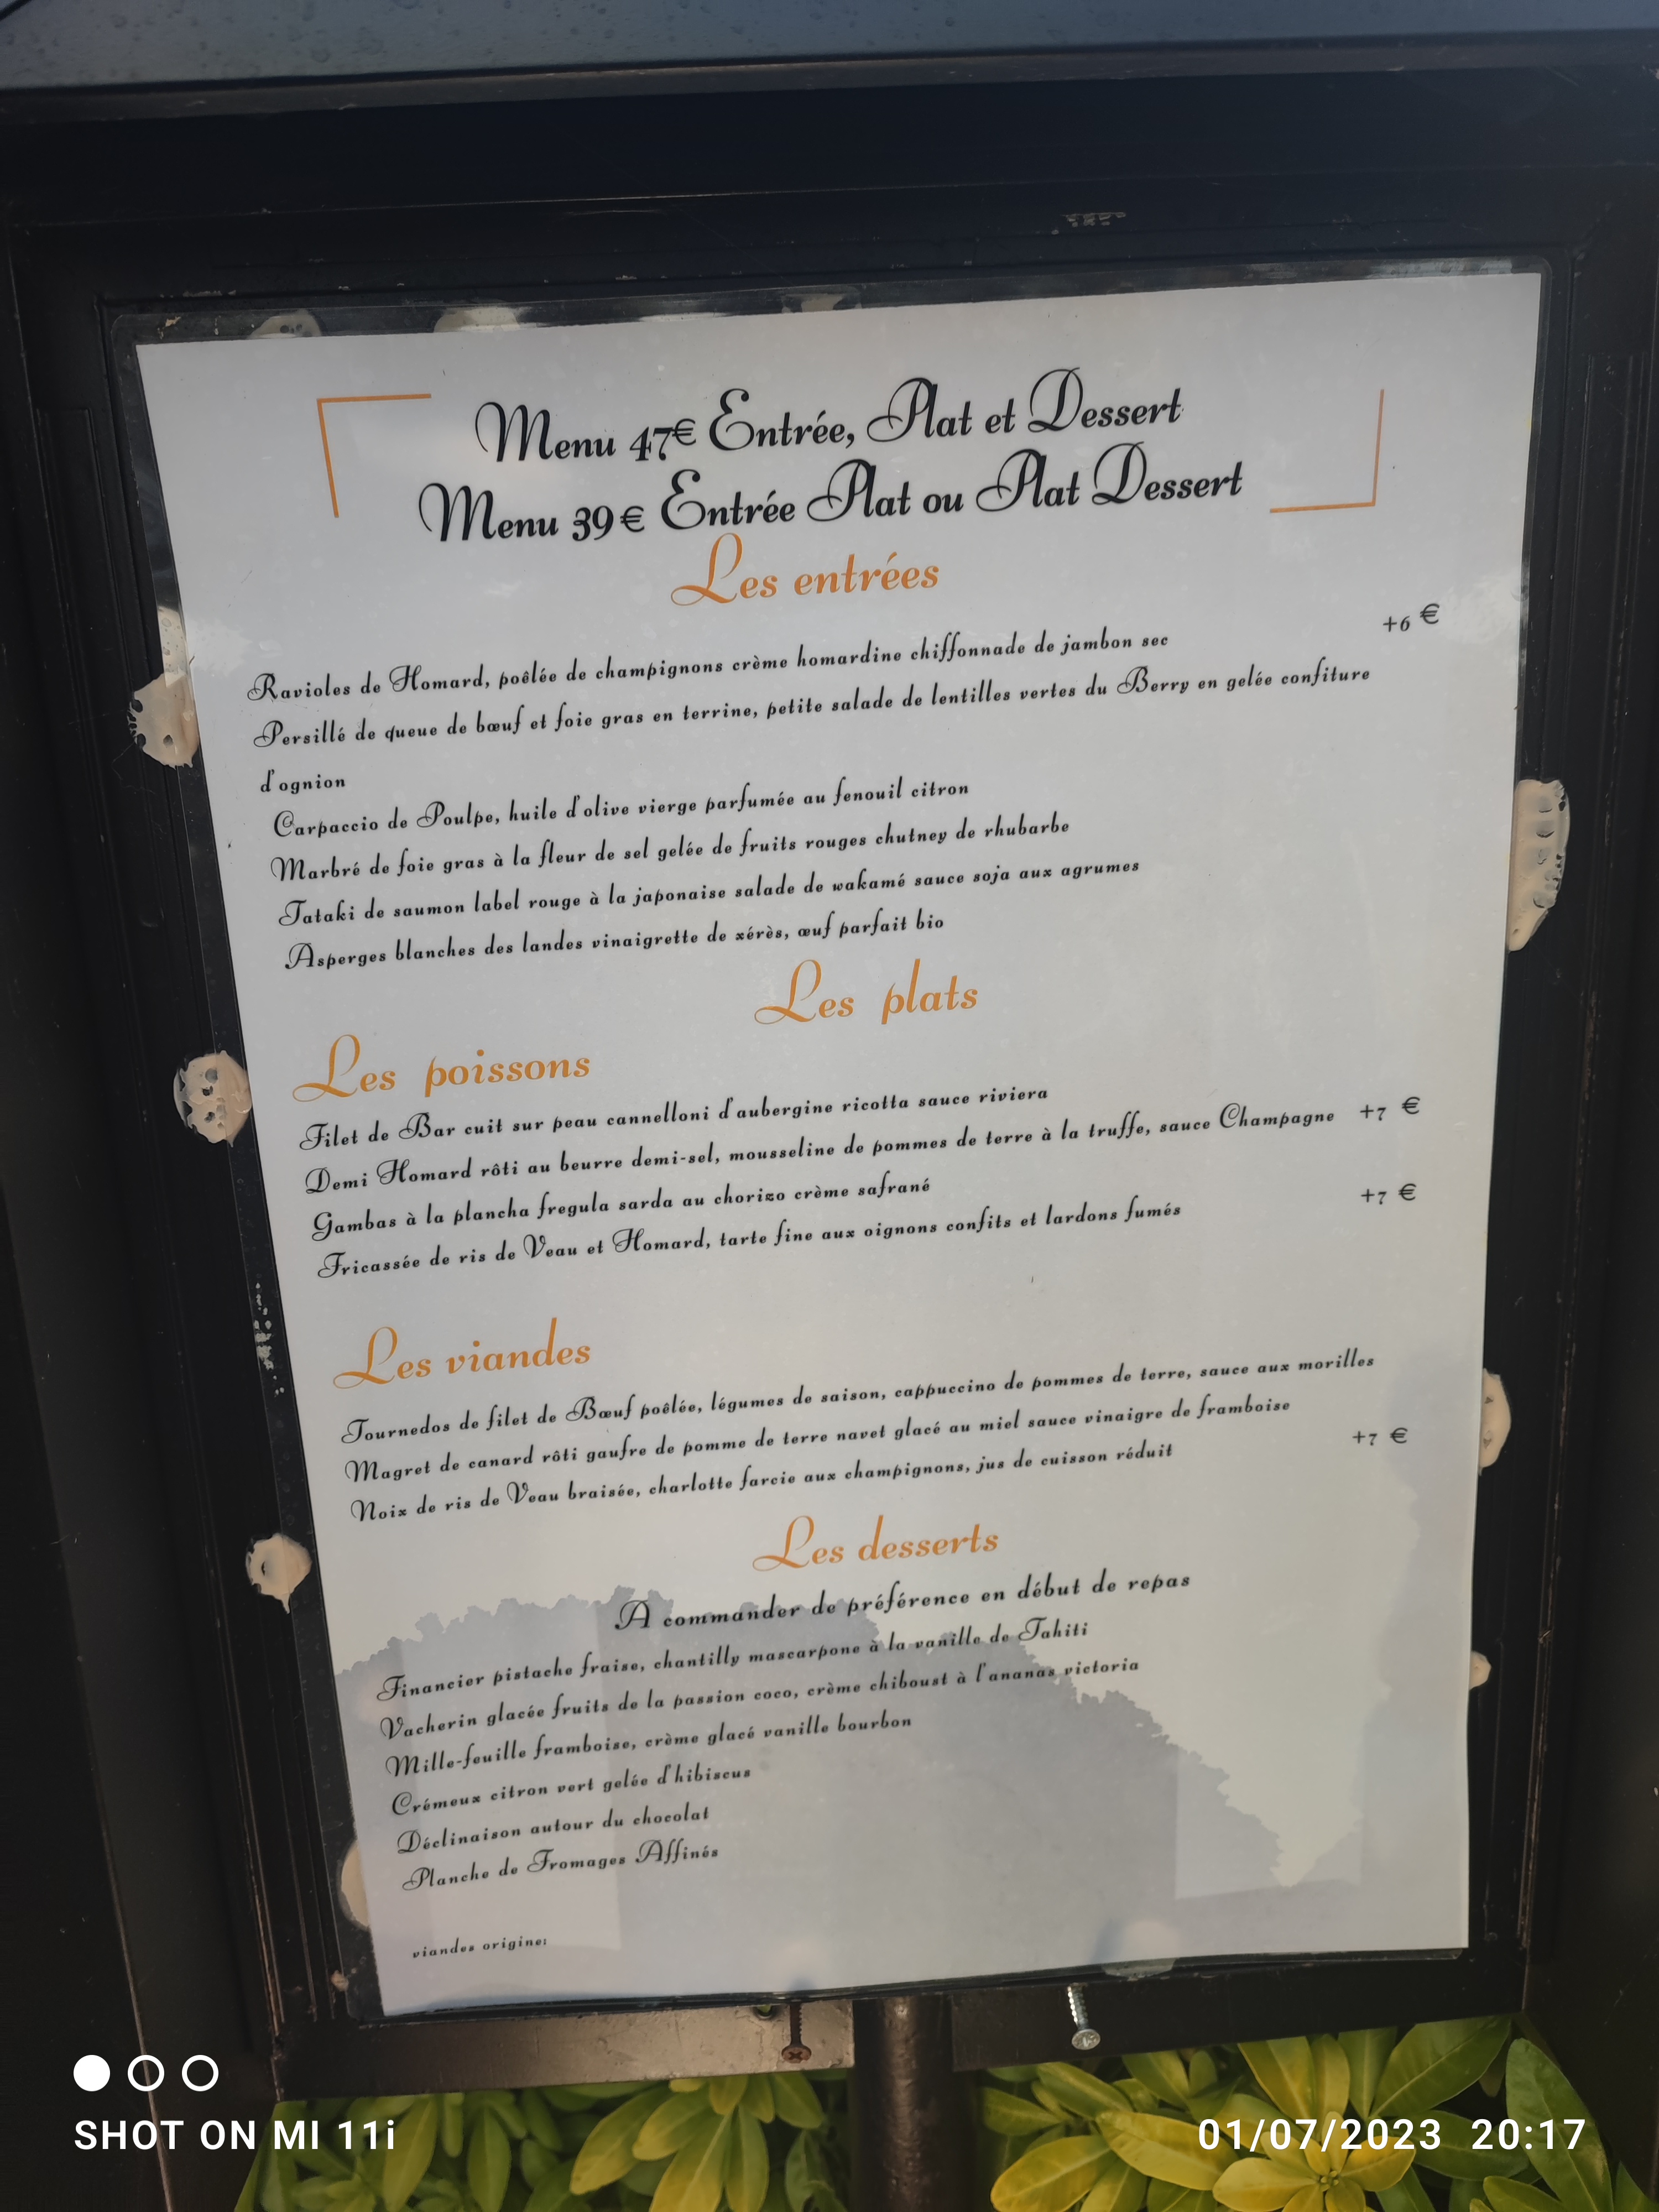 Menu 47€ Entrée, Plat et Dessert
Menu 39€ Entrée Plat ou Plat Dessert
Les entrées
Ravioles de Homard, poêlée de champignons crème homardine chiffonnade de jambon sec +6 €
Persillé de queue de bœuf et foie gras en terrine, petite salade de lentilles vertes du Berry en gelée confiture
d'ognion
Carpaccio de Poulpe, huile d'olive vierge parfumée au fenouil citron
Marbré de foie gras à la fleur de sel gelée de fruits rouges chutney de rhubarbe
Tataki de saumon label rouge à la japonaise salade de wakamé sauce soja aux agrumes
Asperges blanches des landes vinaigrette de xérès, œuf parfait bio
Les plats
Les poissons
Filet de Bar cuit sur peau cannelloni d'aubergine ricotta sauce riviera
Demi Homard rôti au beurre demi-sel, mousseline de pommes de terre à la truffe, sauce Champagne +7 €
Gambas à la plancha fregula sarda au chorizo crème safrané
Fricassée de ris de Veau et Homard, tarte fine aux oignons confits et lardons fumés +7 €
Les viandes
Tournedos de filet de Bœuf poêlée, légumes de saison, cappuccino de pommes de terre, sauce aux morilles
Magret de canard rôti gaufre de pomme de terre navet glacé au miel sauce vinaigre de framboise
Noix de ris de Veau braisée, charlotte farcie aux champignons, jus de cuisson réduit +7 €
Les desserts
A commander de préférence en début de repas
Financier pistache fraise, chantilly mascarpone à la vanille de Tahiti
Vacherin glacée fruits de la passion coco, crème chiboust à l'ananas victoria
Mille-feuille framboise, crème glacé vanille bourbon
Crémeux citron vert gelée d'hibiscus
Déclinaison autour du chocolat
Planche de Fromages Affinés
viandes origine:
SHOT ON MI 11i
01/07/2023 20:17